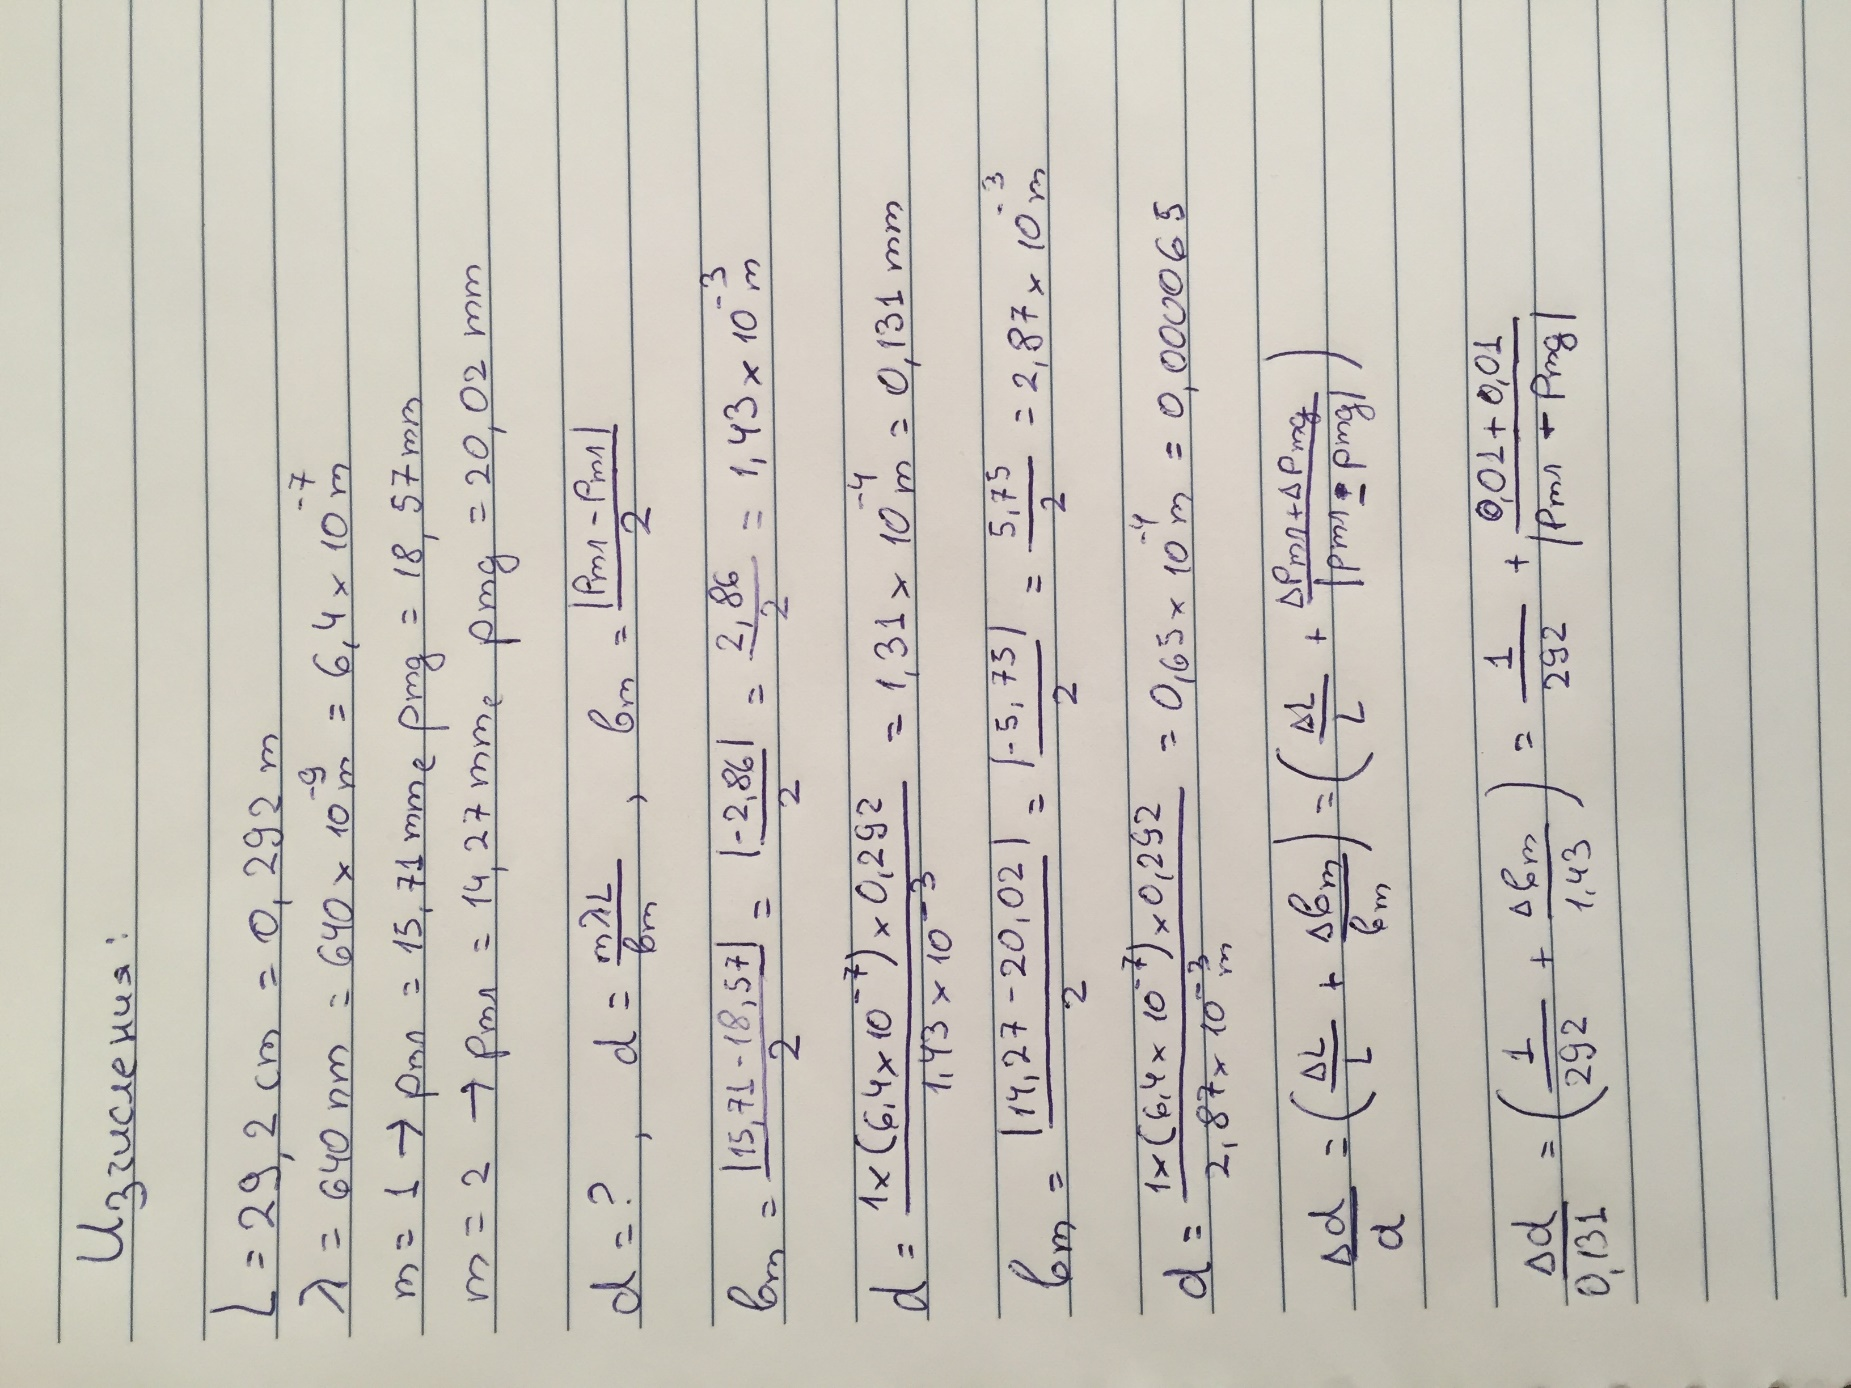 Изчисления:
L = 29,2 cm = 0,292 m
λ = 640 nm = 640 x 10⁻⁹ m = 6,4 x 10⁻⁷ m
m = 1 → pmл = 15,71 mm, pmg = 18,57 mm
m = 2 → pmл = 14,27 mm, pmg = 20,02 mm
d = ? , d = mλL/bm , bm = |Pmл - Pmл|/2
bm = |15,71 - 18,57|/2 = |-2,86|/2 = 2,86/2 = 1,43 x 10⁻³ m
d = 1x(6,4 x 10⁻⁷) x 0,292/1,43 x 10⁻³ = 1,31 x 10⁻⁴ m = 0,131 mm
bm = |14,27 - 20,02|/2 = |-5,75|/2 = 5,75/2 = 2,87 x 10⁻³ m
d = 1x(6,4 x 10⁻⁷) x 0,292/2,87 x 10⁻³ m = 0,65 x 10⁻⁴ m = 0,000065
Δd/d = (ΔL/L + Δbm/bm) = (ΔL/L + ΔPmл + ΔPmg/|pmл - pmg|)
Δd/0,131 = (1/292 + Δbm/1,43) = 1/292 + 0,01 + 0,01/|Pmл - Pmg|